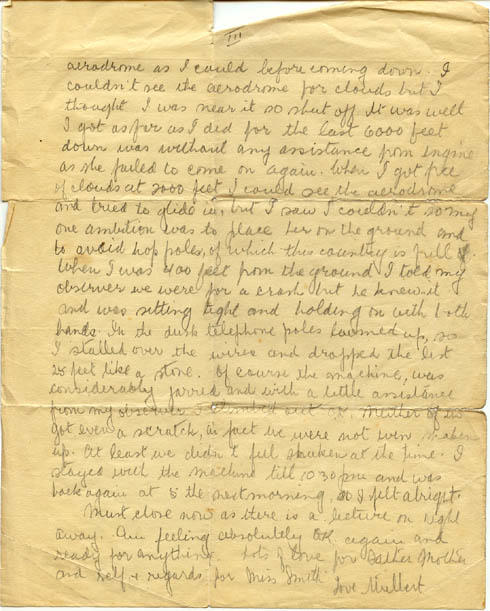 III
aerodrome as I could before coming down. I
couldn't see the aerodrome for clouds but I
thought I was near it so shut off. It was well
I got as far as I did for the last 6000 feet
down was without any assistance from engine
as she failed to come on again. When I got free
of clouds at 2000 feet I could see the aerodrome
and tried to glide in, but I saw I couldn't so my
one ambition was to place her on the ground and
to avoid hop poles, of which this country is full.
When I was 400 feet from the ground I told my
observer we were for a crash but he knew it
and was sitting tight and holding on with both
hands. In the dusk telephone poles loomed up, so
I stalled over the wires and dropped the last
25 feet like a stone. Of course the machine, was
considerably jarred and with a little assistance
from my observer I climbed out O.K. Neither of us
got even a scratch, in fact we were not even shaken
up. At least we didn't feel shaken at the time. I
stayed with the machine till 10.30 pm and was
back again at 5 the next morning, so I felt alright.
Must close now as there is a lecture on right
away. Am feeling absolutely OK again and
ready for anything. Lots of love for Father Mother
and self & regards for Miss Smith
Love